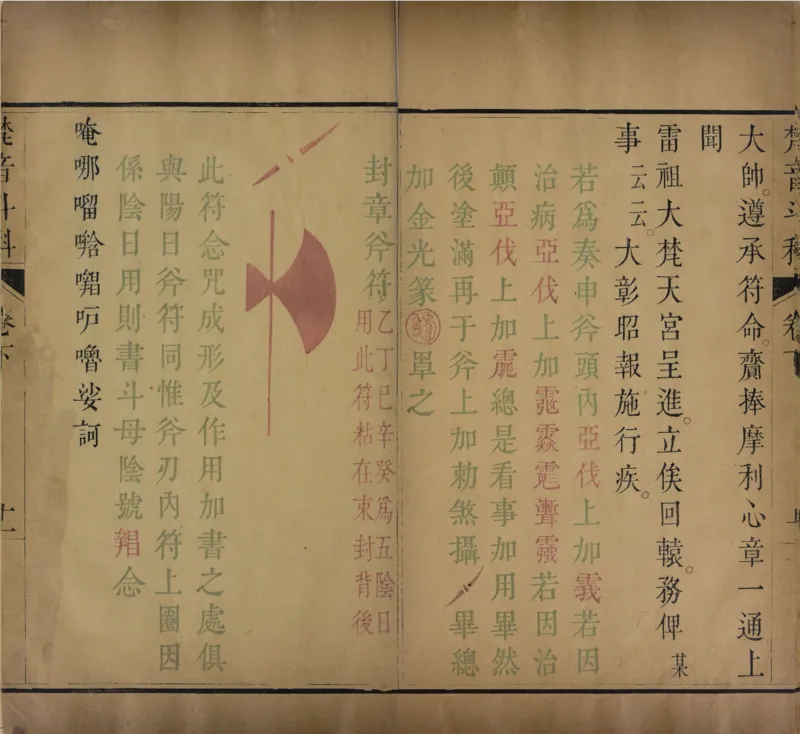 大帥。遵承符命。齎捧摩利心章一通上
聞
雷祖大梵天宮呈進。立俟回轅。務俾某
事云云。大彰昭報施行疾。
若爲奏申斧頭內亞伐上加䨥若因
治病亞伐上加若因治
顛亞伐上加總是看事加用畢然
後塗滿再于斧上加勅煞攝畢總
加金光篆罩之
封章斧符乙丁巳辛癸爲五陰日
用此符粘在束封背後
此符念咒成形及作用加書之處俱
與陽日斧符同惟斧刃內符上圈因
係陰日用則書斗母陰號念
唵哪嚕娑訶
梵音斗科
卷下
十一